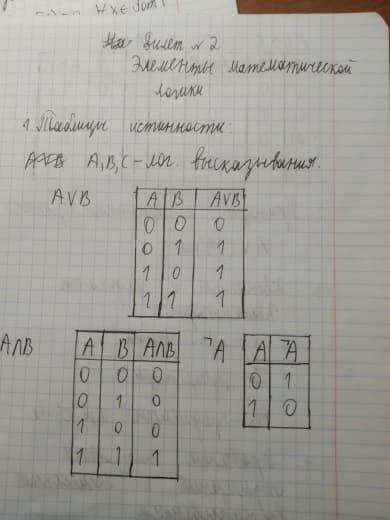 ∀x∈dom
Билет №2
Элементы математической
логики
1. Таблицы истинности:
A,B,C – лог. высказывания.
A∨B
A B A∨B
0 0 0
0 1 1
1 0 1
1 1 1
A∧B
A B A∧B
0 0 0
0 1 0
1 0 0
1 1 1
¬A
A ¬A
0 1
1 0